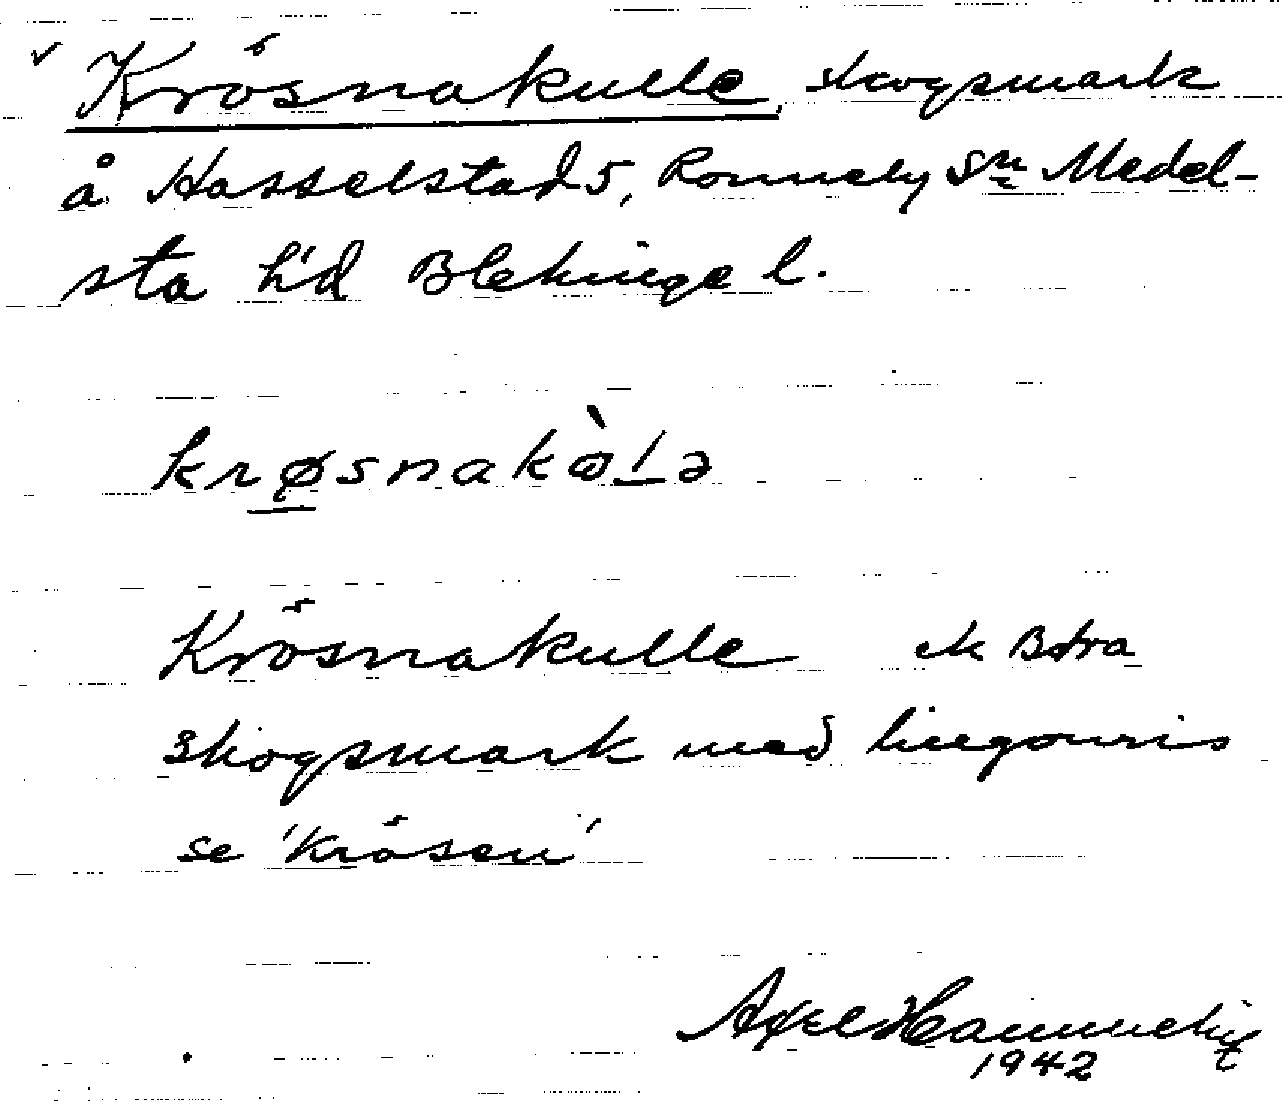 Krösnakulle, skogsmark
å Hasselstad 5, Ronneby sn Medel-
sta h'd Blekinge l.
krøsnakòlə
Krösnakulle
skogsmark med lingonris
se 'Krösen'
Axel
1942